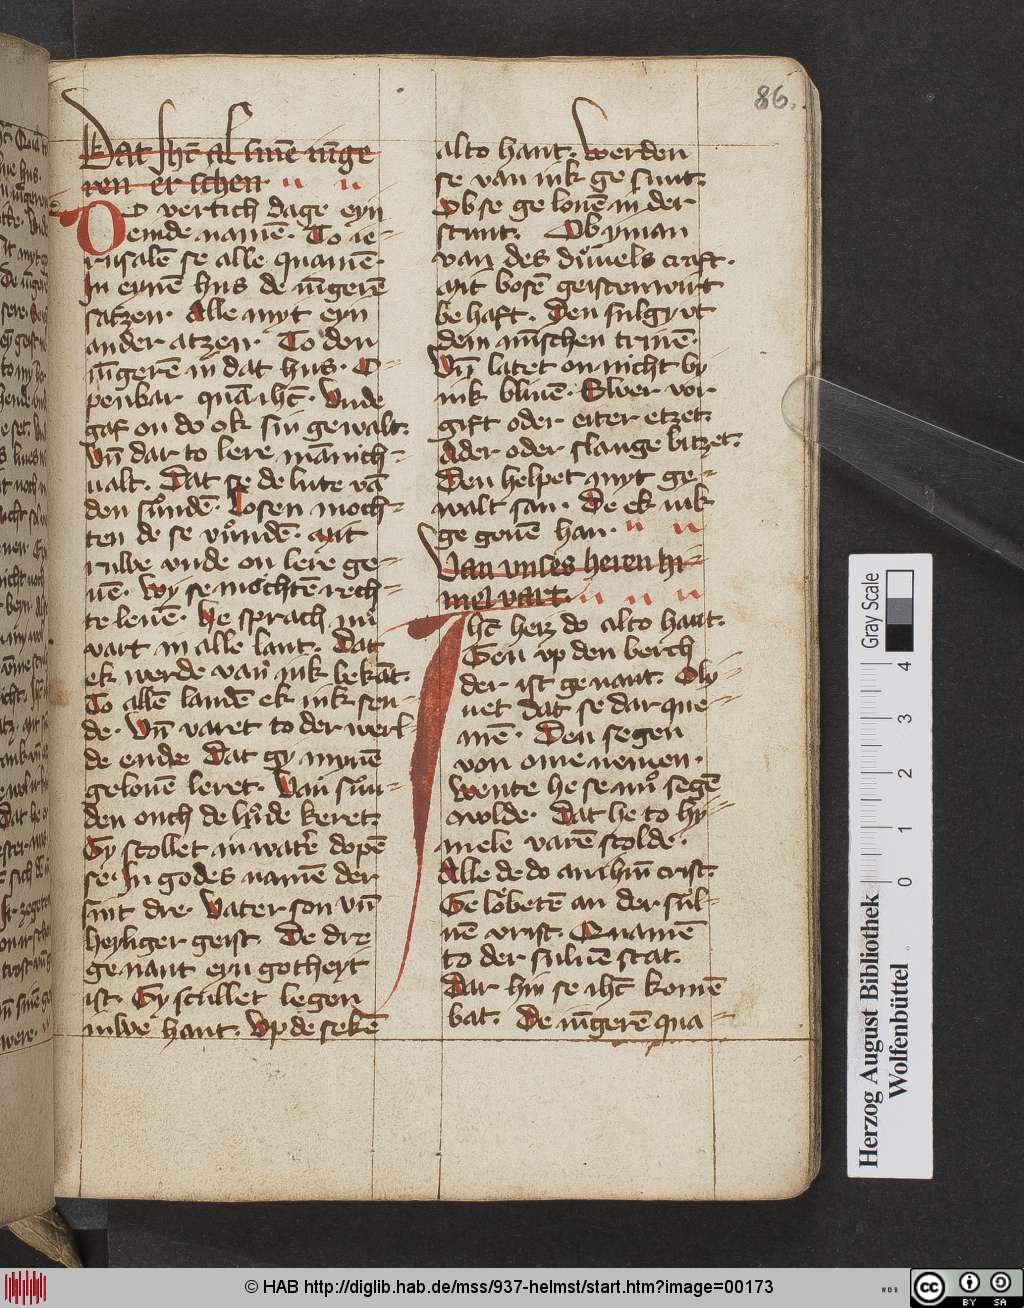 86.
Dat ihc̄ al sinē iūge
ren er schen
Do vertich dage eyn
ende namē. To ie-
rusalē se alle quamē.
In eynē hus de iūgerē
satzen. Alle myt eyn
ander atzen. To den
iūgerē in dat hus. O-
penbar quā ihc̄. Vnde
gaf on do ok sin gewalt.
Vn̄ dar to lere mānich-
ualt. Dat se de lute vā
den sundē. Losen moch-
ten de se vundē. Mit
ruwe vnde on lere ge-
uē. Wy se mochtē rech-
te leuen. He sprach nu
vart in alle lant. Dat
ek werde van iuk bekāt.
To allē landē ek iuk sen-
de. Vn̄ varet to der werl-
de ende Dat gy mynē
gelouē leret. Van sun-
den ouch de lude keret.
Gy scollet in watere dopē
se. In godes namē der
sint dre. Vater son vn̄
heyliger geist. De dre
genant eyn gotheyt
ist. Gy scullet legen
iuwe hant. Vp de sekē
alto hant. Werden
se van iuk ge sunt.
Ob se ge louē in der
stunt. Ob yman
van des duuels craft.
Mit bosē geisten wirt
be haft. Den sulgy vt
dem mīschen triuē.
Vn̄ latet on nicht by
iuk bliuē. Elwer vor
gift oder eiter etzet.
Ader oder slange bitzet.
Den helpet myt ge-
walt san. De ek iuk
ge geuē han.
Van vnses heren hi-
mel vart
Ihc̄ herz do alto hant.
Gen vp den berch
der ist genant. Oly-
uet dat se dar que-
mē. Den segen
von ome nemen.
Wente he se nu segē
wolde. Dat he to hy-
mele varē scolde.
Alle de do an ihm̄ crist.
Ge lobetē an der sul-
uē vrist. Quamē
to der suluē stat.
Dar hin se ihc̄ komē
bat. De iūgerē qua-
Herzog August Bibliothek
Wolfenbüttel
0 1 2 3 4
Gray Scale
© HAB http://diglib.hab.de/mss/937-helmst/start.htm?image=00173
WDB
cc
BY SA